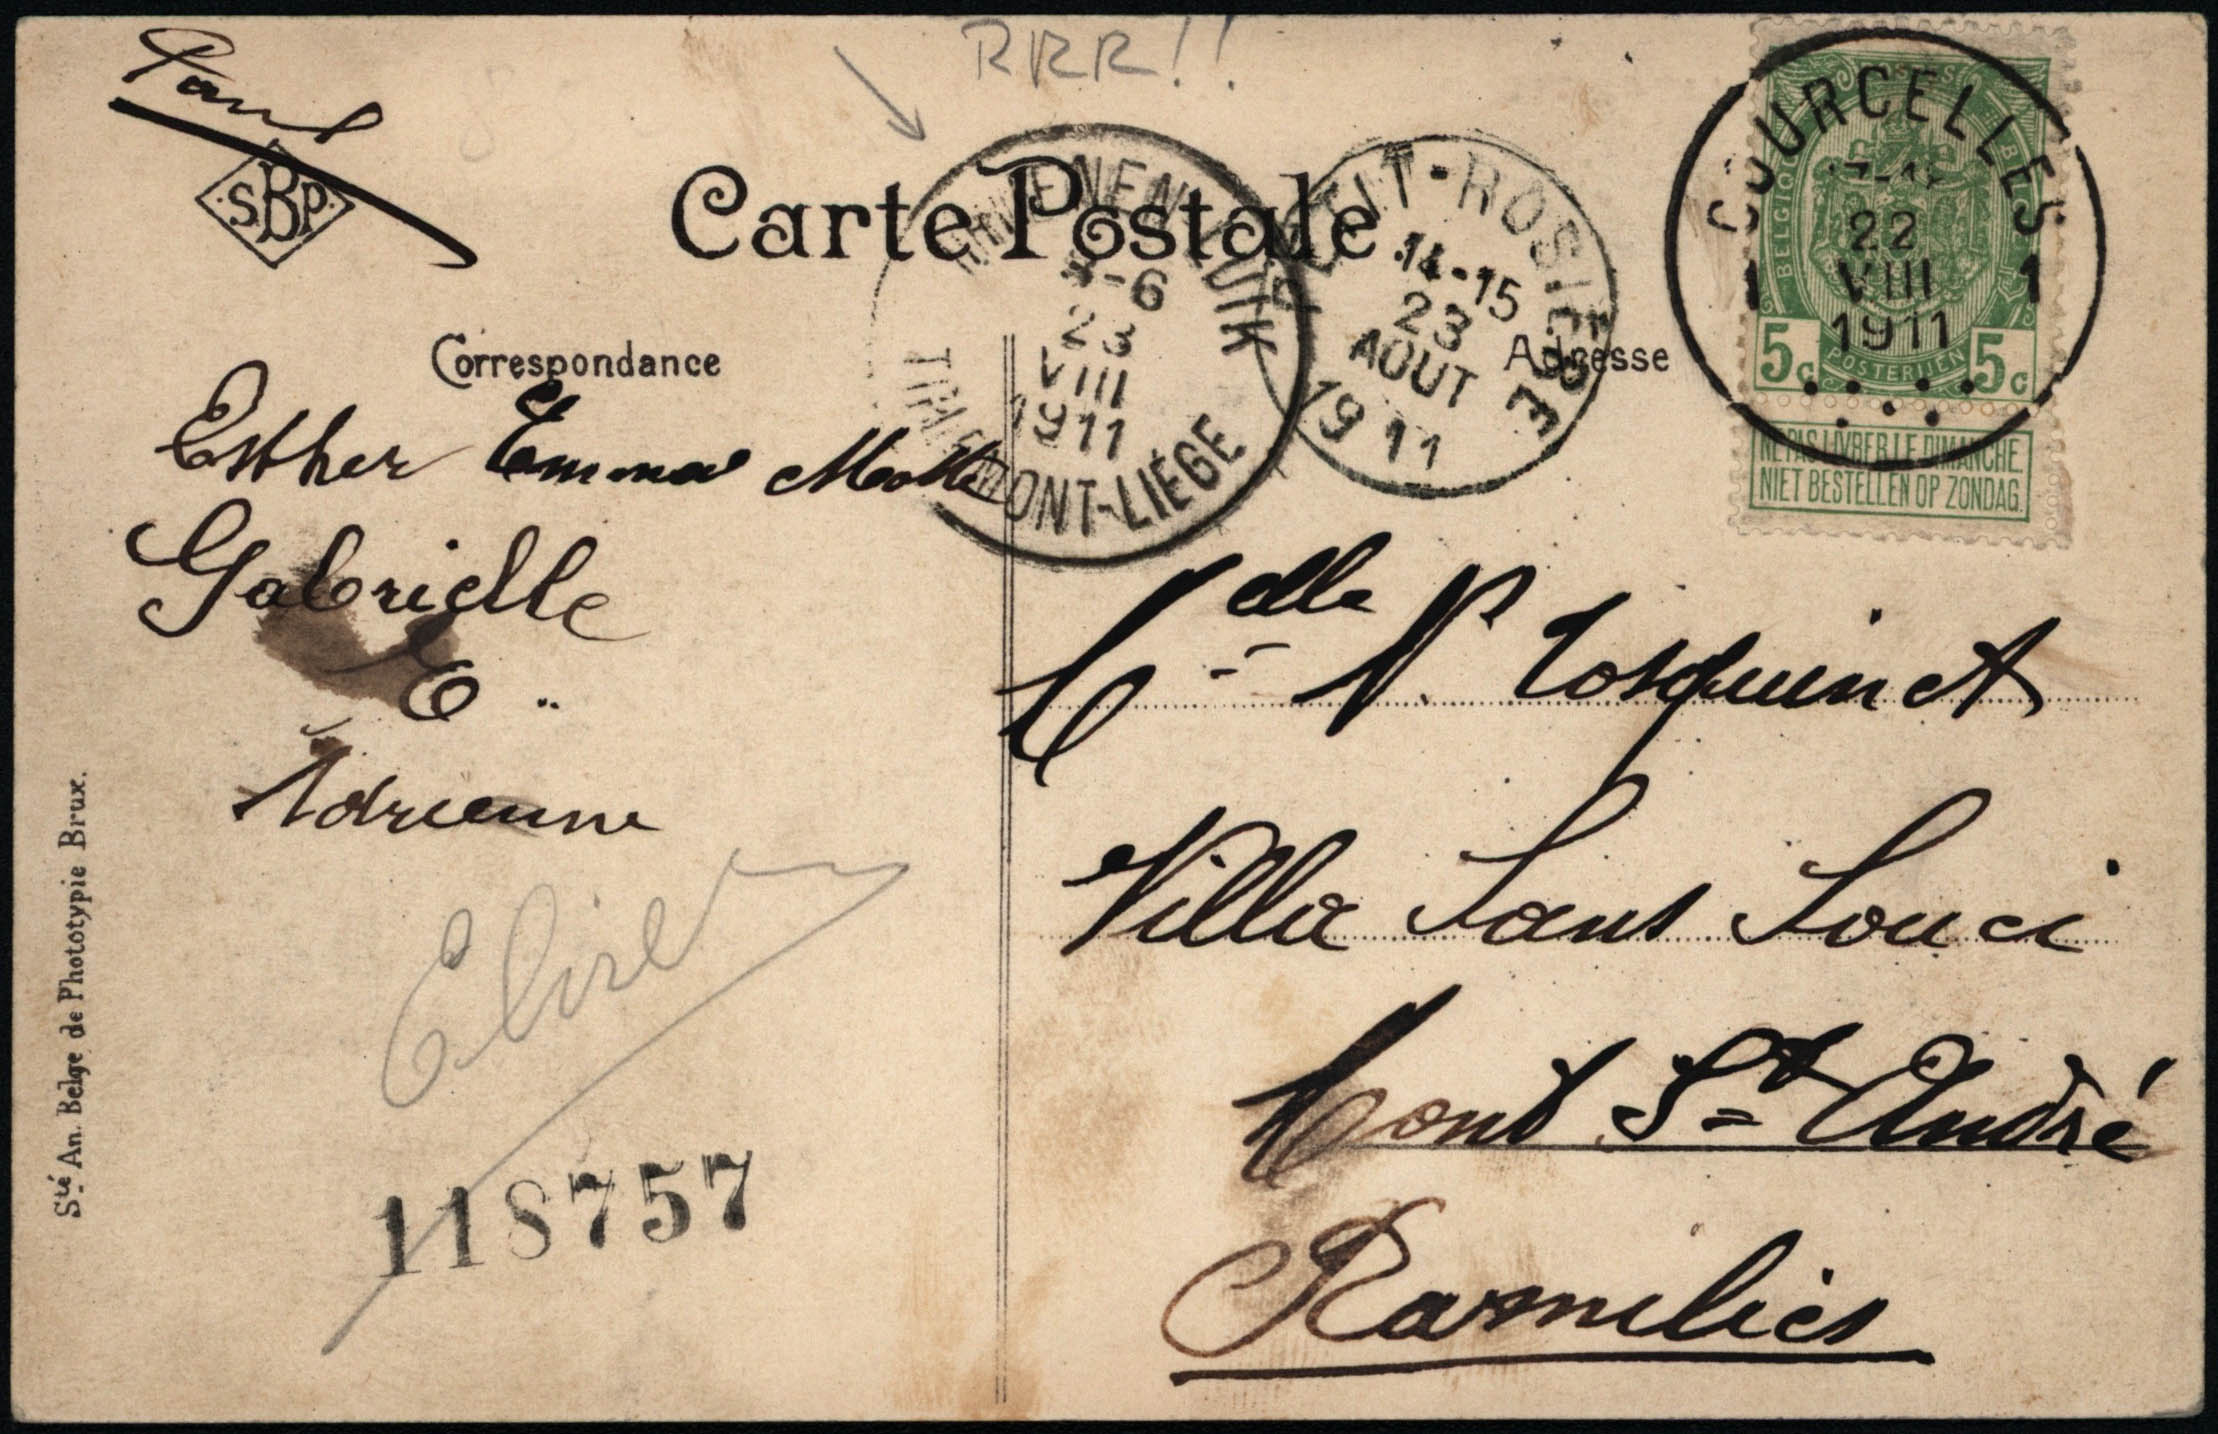 RRR!!
Paul
SBP
Carte Postale
THIENEN-LUIK
5-6
23
VIII
1911
TIRLEMONT-LIÈGE
PETIT-ROSIÈRE
14-15
23
AOUT
1911
COURCELLES
22
VIII
1911
1 1
BELGIQUE
BELGIË
5c 5c
POSTERIJEN
NE PAS LIVRER LE DIMANCHE
NIET BESTELLEN OP ZONDAG.
Correspondance
Adresse
Esther Emma
Gabrielle
E
Adrienne
118757
Sté An. Belge de Phototypie Brux.
Melle M Tosquinet
Villa Sans Souci
Mont St André
Ramilies